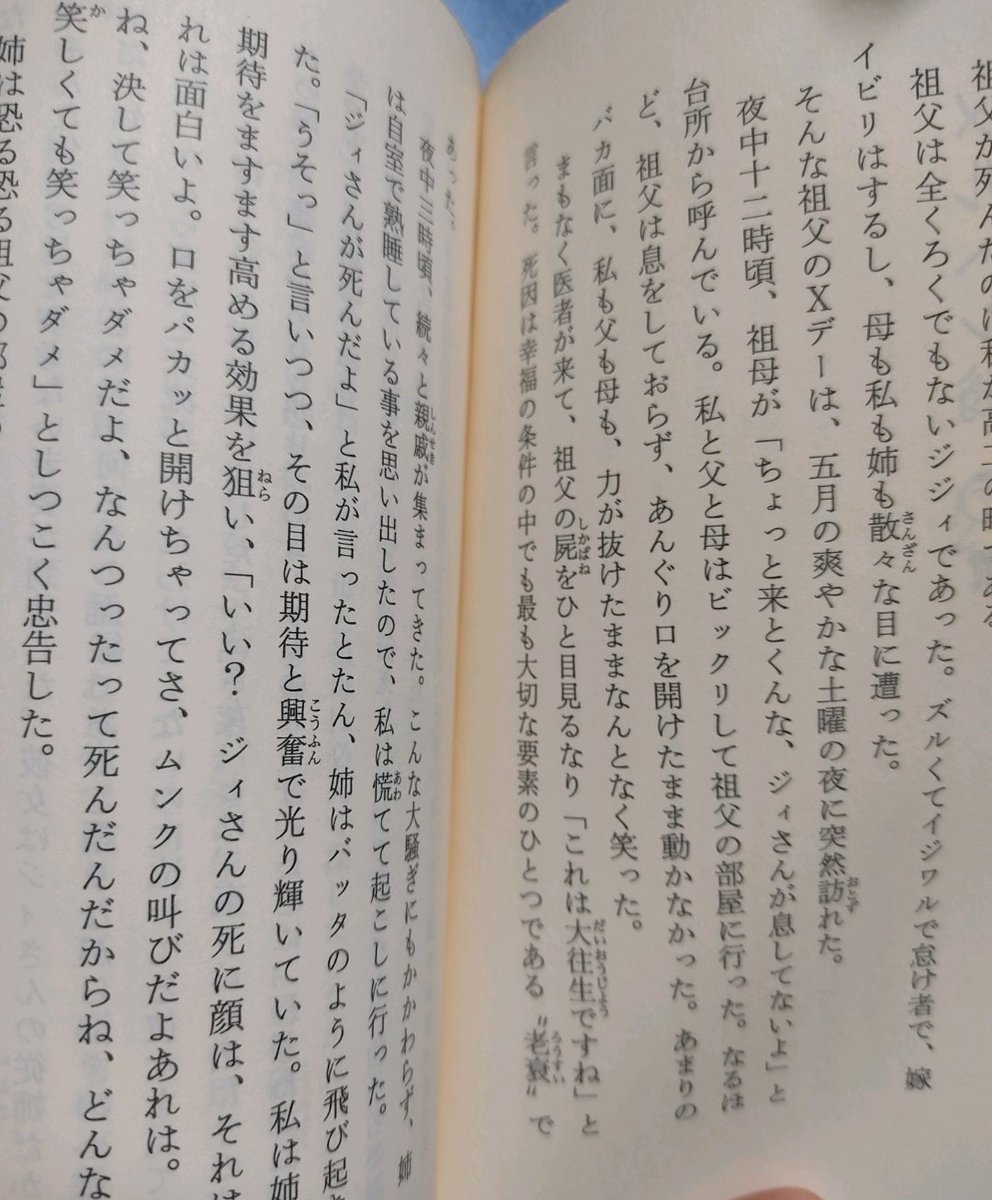 祖父が死んだのは私が高二の時である
祖父は全くろくでもないジジィであった。ズルくてイジワルで怠け者で、嫁
イビリはするし、母も私も姉も散々な目に遭った。
そんな祖父のXデーは、五月の爽やかな土曜の夜に突然訪れた。
夜中十二時頃、祖母が「ちょっと来とくんな、ジィさんが息してないよ」と
台所から呼んでいる。私と父と母はビックリして祖父の部屋に行った。なるほ
ど、祖父は息をしておらず、あんぐり口を開けたまま動かなかった。あまりの
バカ面に、私も父も母も、力が抜けたままなんとなく笑った。
まもなく医者が来て、祖父の屍をひと目見るなり「これは大往生ですね」と
言った。死因は幸福の条件の中でも最も大切な要素のひとつである〝老衰〟で
あった。
夜中三時頃、続々と親戚が集まってきた。こんな大騒ぎにもかかわらず、姉
は自室で熟睡している事を思い出したので、私は慌てて起こしに行った。
「ジィさんが死んだよ」と私が言ったとたん、姉はバッタのように飛び起き
た。「うそっ」と言いつつ、その目は期待と興奮で光り輝いていた。私は姉
期待をますます高める効果を狙い、「いい？ ジィさんの死に顔は、それは
れは面白いよ。口をパカッと開けちゃってさ、ムンクの叫びだよあれは。
ね、決して笑っちゃダメだよ、なんつったって死んだんだからね、どんな
笑しくても笑っちゃダメ」としつこく忠告した。
姉は恐る恐る祖父の部屋の